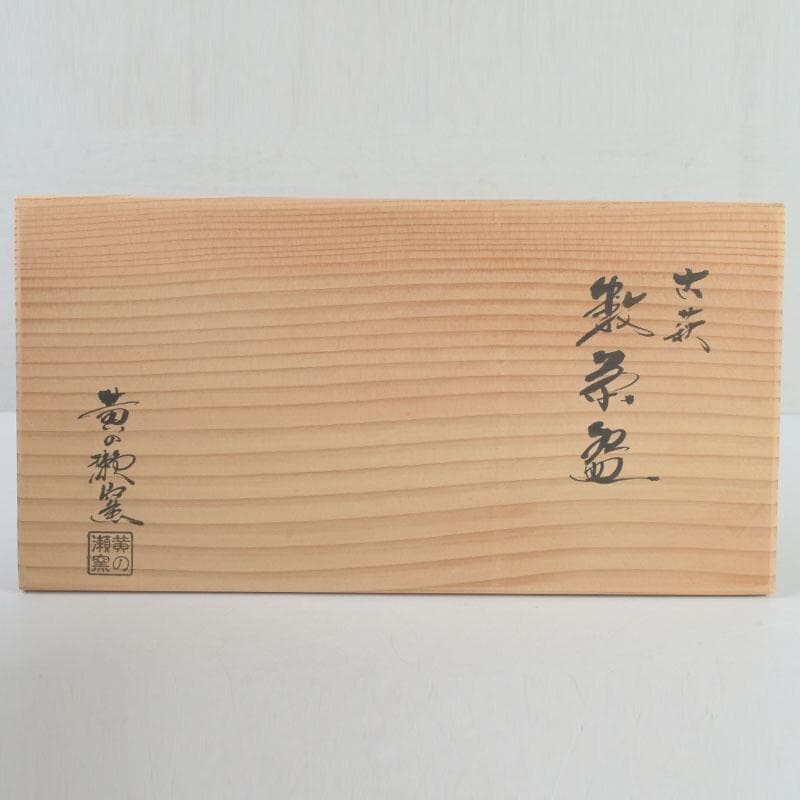 古萩
数茶盌
黄の瀬窯
黄の
瀬窯